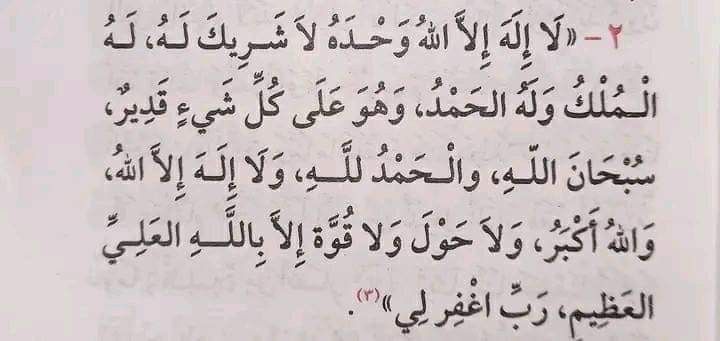 ٢ – «لَا إِلَهَ إِلاَّ اللهُ وَحْدَهُ لاَ شَرِيكَ لَهُ، لَهُ
الْمُلْكُ وَلَهُ الحَمْدُ، وَهُوَ عَلَى كُلِّ شَيءٍ قَدِيرٌ،
سُبْحَانَ اللَّهِ، والْحَمْدُ للَّهِ، وَلَا إِلَهَ إِلاَّ اللهُ،
وَاللهُ أَكْبَرُ، وَلاَ حَوْلَ وَلا قُوَّة إِلاَّ بِاللَّهِ العَلِيِّ
العَظِيمِ، رَبِّ اغْفِر لِي»(٣).